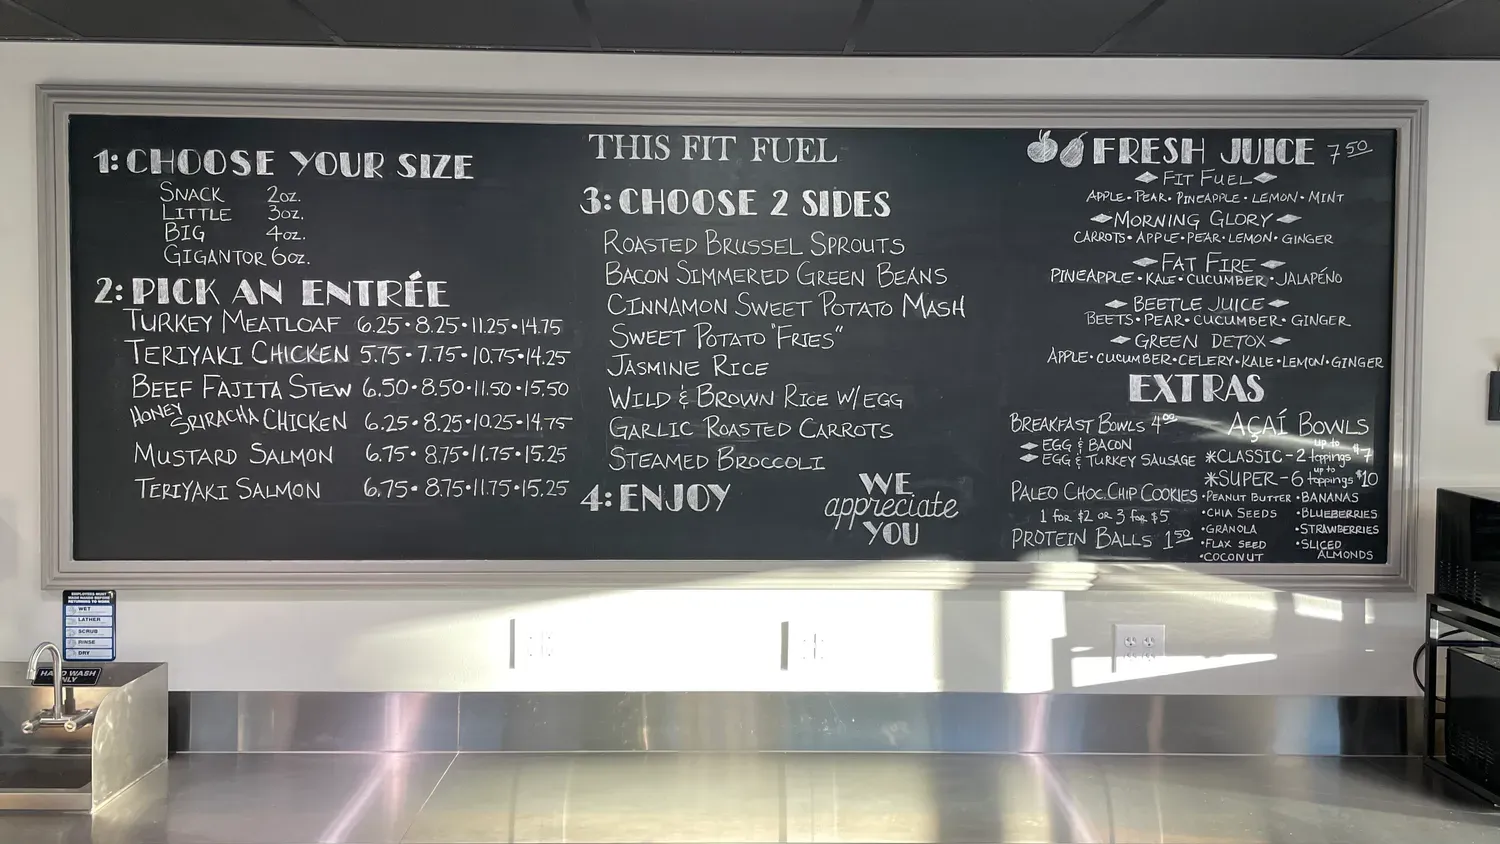 1: CHOOSE YOUR SIZE
SNACK 2oz.
LITTLE 3oz.
BIG 4oz.
GIGANTOR 6oz.
2: PICK AN ENTRÉE
TURKEY MEATLOAF 6.25 • 8.25 • 11.25 • 14.75
TERIYAKI CHICKEN 5.75 • 7.75 • 10.75 • 14.25
BEEF FAJITA STEW 6.50 • 8.50 • 11.50 • 15.50
HONEY SRIRACHA CHICKEN 6.25 • 8.25 • 10.25 • 14.75
MUSTARD SALMON 6.75 • 8.75 • 11.75 • 15.25
TERIYAKI SALMON 6.75 • 8.75 • 11.75 • 15.25
THIS FIT FUEL
3: CHOOSE 2 SIDES
ROASTED BRUSSEL SPROUTS
BACON SIMMERED GREEN BEANS
CINNAMON SWEET POTATO MASH
SWEET POTATO "FRIES"
JASMINE RICE
WILD & BROWN RICE W/EGG
GARLIC ROASTED CARROTS
STEAMED BROCCOLI
4: ENJOY
WE
appreciate
YOU
FRESH JUICE 7 50
FIT FUEL
APPLE • PEAR • PINEAPPLE • LEMON • MINT
MORNING GLORY
CARROTS • APPLE • PEAR • LEMON • GINGER
FAT FIRE
PINEAPPLE • KALE • CUCUMBER • JALAPÉNO
BEETLE JUICE
BEETS • PEAR • CUCUMBER • GINGER
GREEN DETOX
APPLE • CUCUMBER • CELERY • KALE • LEMON • GINGER
EXTRAS
BREAKFAST BOWLS 4 00
EGG & BACON
EGG & TURKEY SAUSAGE
PALEO CHOC. CHIP COOKIES
1 for $2 OR 3 for $5
PROTEIN BALLS 1 50
AÇAÍ BOWLS
*CLASSIC - 2 up to toppings $7
*SUPER - 6 up to toppings $10
• PEANUT BUTTER • BANANAS
• CHIA SEEDS • BLUEBERRIES
• GRANOLA • STRAWBERRIES
• FLAX SEED • SLICED ALMONDS
• COCONUT
EMPLOYEES MUST
WASH HANDS BEFORE
RETURNING TO WORK
WET
LATHER
SCRUB
RINSE
DRY
HAND WASH
ONLY